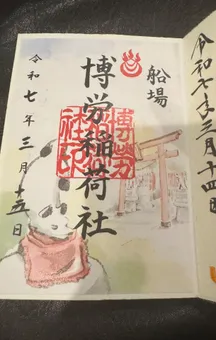 船場
博労稲荷社
博労
稲荷
社印
令和七年三月十五日
令和七年三月十四日